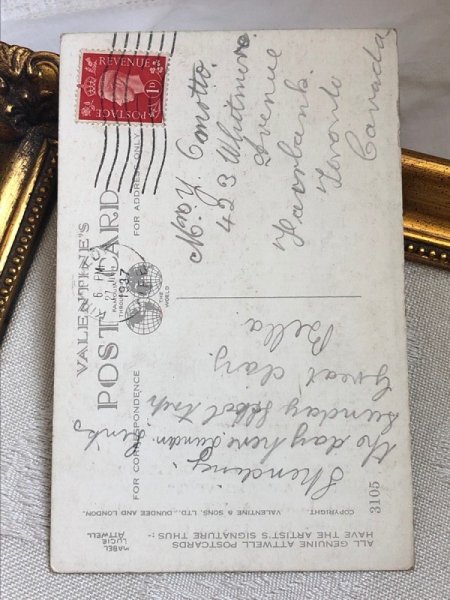 VALENTINE'S
POST CARD
FOR CORRESPONDENCE
FOR ADDRESS ONLY
REVENUE
1D
POSTAGE
6 PM
21
1937
WORLD
the day here
Sunday
Great day.
Bella
423 Whitmore
Avenue
Fairbank
Toronto
Canada
MABEL
LUCIE
ATTWELL
ALL GENUINE ATTWELL POSTCARDS
HAVE THE ARTIST'S SIGNATURE THUS:-
COPYRIGHT. VALENTINE & SONS, LTD., DUNDEE AND LONDON.
3105